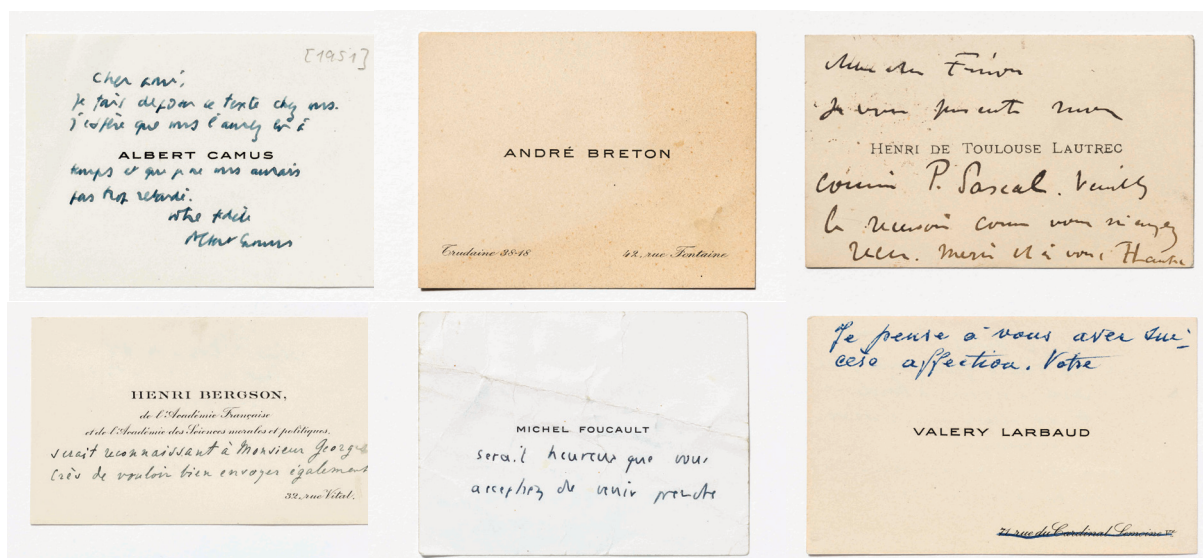 [1951]
Cher ami,
Je fais déposer ce texte chez vous.
J'espère que vous l'aurez eu à
ALBERT CAMUS
temps et que je ne vous aurais
pas trop retardé.
votre fidèle
Albert Camus
ANDRÉ BRETON
Trudaine 38-18
42, rue Fontaine
Mon cher
Je vous présente mon
HENRI DE TOULOUSE LAUTREC
cousin P. Pascal. Veuillez
le recevoir comme vous m'avez
reçu. Merci et à vous
HENRI BERGSON,
de l'Académie Française
et de l'Académie des Sciences morales et politiques,
serait reconnaissant à Monsieur Georges
Crès de vouloir bien envoyer également
32, rue Vital.
MICHEL FOUCAULT
serait heureux que vous
acceptiez de venir prendre
Je pense à vous avec sin-
cère affection. Votre
VALERY LARBAUD
71, rue du Cardinal Lemoine